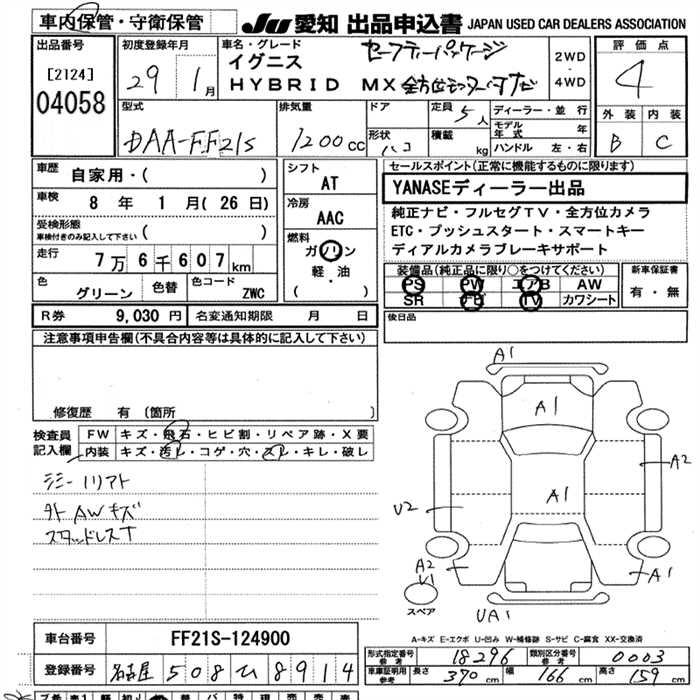 車内保管・守衛保管
JU 愛知 出品申込書 JAPAN USED CAR DEALERS ASSOCIATION
出品番号
[2124]
04058
初度登録年月
29年 1月
車名・グレード
イグニス セーフティーパッケージ
HYBRID MX 全方位モニターナビ
2WD
4WD
評価点
4
外装 内装
B C
型式
DAA-FF21S
排気量
1200cc
ドア
形状
ハコ
定員 5人
積載 kg
ディーラー・並行
モデル年式 年
ハンドル 左・右
車歴 自家用・( )
車検 8年 1月(26日)
受検形態
車検付きのみ記入して下さい ( )
走行 7万6千607km
色 グリーン 色替 色コード ZWC
シフト
AT
冷房
AAC
燃料
ガソリン
軽・油
( )
セールスポイント(正常に機能するものに限ります)
YANASEディーラー出品
純正ナビ・フルセグTV・全方位カメラ
ETC・プッシュスタート・スマートキー
ディアルカメラブレーキサポート
装備品(純正品に限り○をつけてください)
PS PW エアB AW
SR ナビ TV カワシート
新車保証書
有・無
R券 9,030円 名変通知期限 月 日
後日品
注意事項申告欄(不具合内容等は具体的に記入して下さい)
修復歴 有 〔箇所 〕
検査員記入欄
FW キズ・飛石・ヒビ割・リペア跡・X要
内装 キズ・汚レ・コゲ・穴・スレ・キレ・破レ
外 AWキズ
スタッドレスT
A1
A1
A1
A2
U2
A2
U1
A1
UA1
スペア
A-キズ E-エクボ U-凹み W-補修跡 S-サビ C-腐食 XX-交換済
車台番号 FF21S-124900
登録番号 名古屋 508 ひ 8914
形式指定番号 参考 18296 類別区分番号 参考 0003
車庫証明用 参考 長さ 370cm 幅 166cm 高さ 159cm